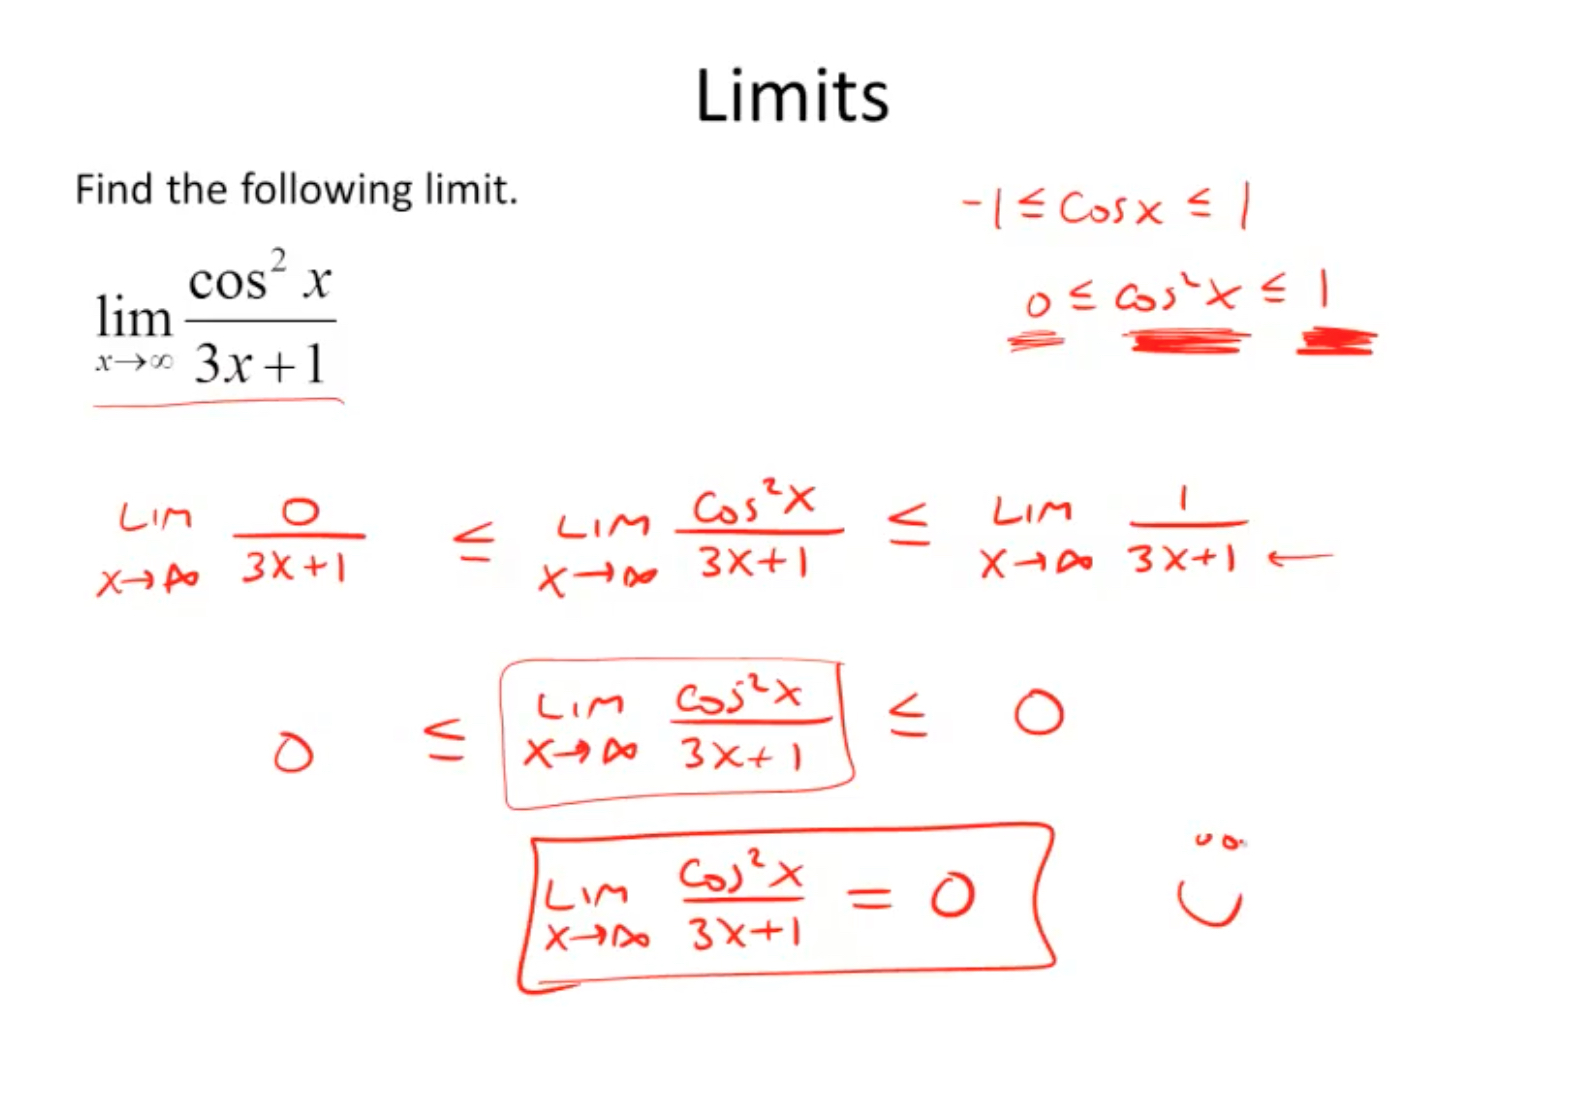 Limits
Find the following limit.
lim x→∞ cos² x / 3x+1
-1 ≤ Cosx ≤ 1
0 ≤ Cos²x ≤ 1
LIM x→∞ 0 / 3x+1 ≤ LIM x→∞ Cos²x / 3x+1 ≤ LIM x→∞ 1 / 3x+1 ←
0 ≤ LIM x→∞ Cos²x / 3x+1 ≤ 0
LIM x→∞ Cos²x / 3x+1 = 0